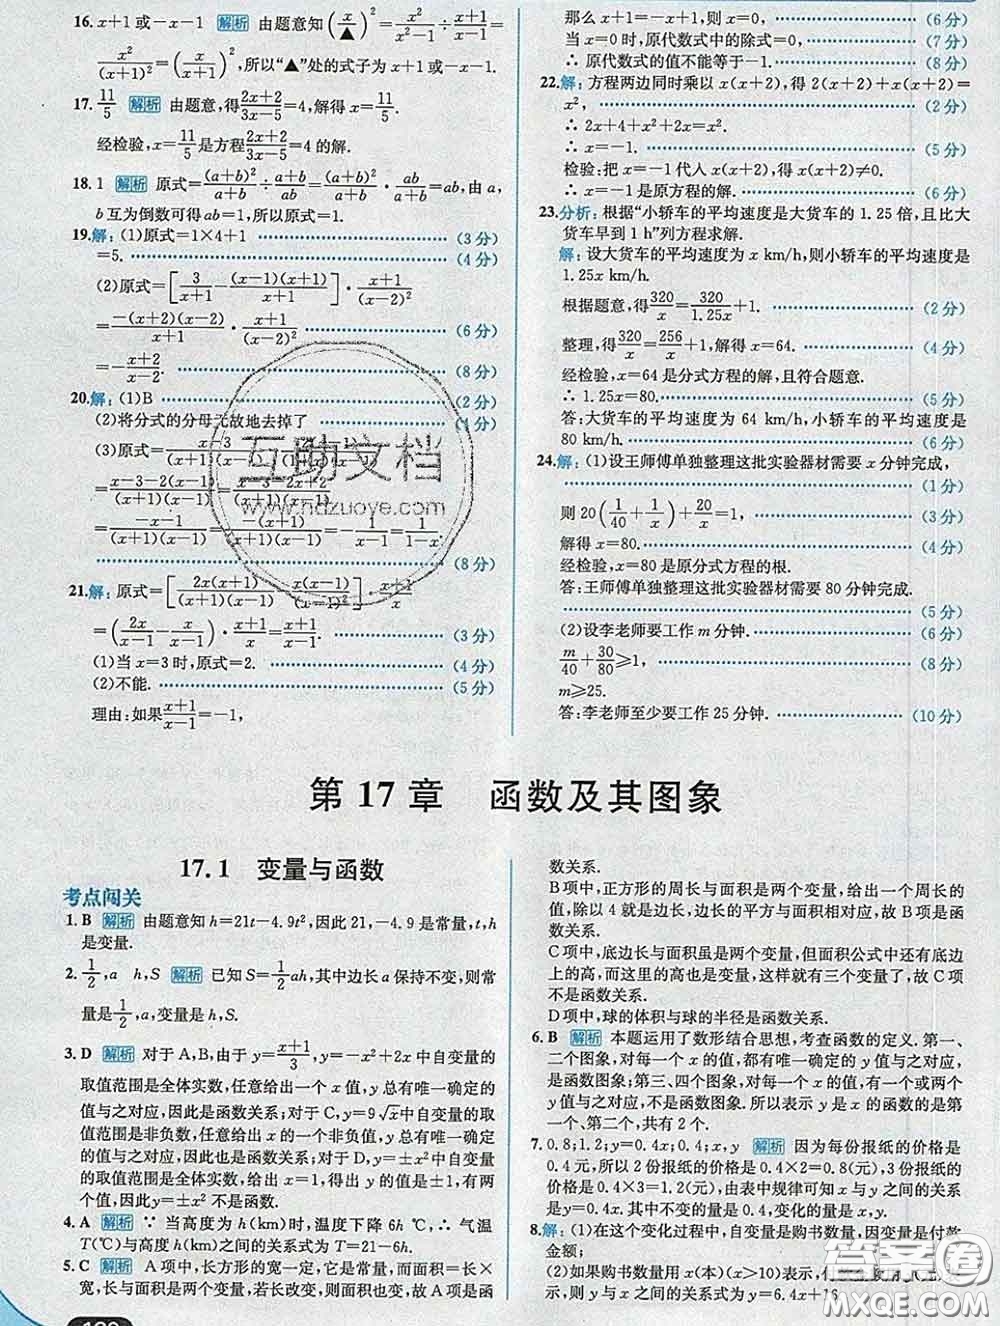 16. x+1或-x-1 解析 由题意知(x/▲)²=x²/(x²-1)÷(x+1)/(x-1)=
x²/(x+1)²=(x/(x+1))²,所以“▲”处的式子为x+1或-x-1.
17. 11/5 解析 由题意,得(2x+2)/(3x-5)=4,解得x=11/5.
经检验,x=11/5是方程(2x+2)/(3x-5)=4的解.
18. 1 解析 原式=(a+b)²/(a+b)÷(a+b)/ab=(a+b)²/(a+b)·ab/(a+b)=ab,由a,
b互为倒数可得ab=1,所以原式=1.
19.解:(1)原式=1×4+1 (3分)
=5. (4分)
(2)原式=[3/(x+1)-(x-1)(x+1)/(x+1)]·(x+1)/(x-2)²
=-(x+2)(x-2)/(x+1)·(x+1)/(x-2)² (6分)
=-(x+2)/(x-2). (8分)
20.解:(1)B (2分)
(2)将分式的分母无故地去掉了
(3)原式=
=
=-(x+1)/(x+1)(x-1)=-1/(x-1)=1/(1-x).
(8分)
21.解:原式=[2x(x+1)/(x+1)(x-1)-x(x-1)/(x-1)²]·(x+1)/x
=(2x/(x-1)-x/(x-1))·(x+1)/x=(x+1)/(x-1). (3分)
(1)当x=3时,原式=2. (4分)
(2)不能. (5分)
理由:如果(x+1)/(x-1)=-1,
那么x+1=-x+1,则x=0, (6分)
当x=0时,原代数式中的除式=0, (7分)
∴原代数式的值不能等于-1. (8分)
22.解:方程两边同时乘以x(x+2),得2(x+2)+x(x+2)=
x², (2分)
∴2x+4+x²+2x=x².
∴x=-1. (5分)
检验:把x=-1代入x(x+2),得x(x+2)≠0.
∴x=-1是原方程的解. (6分)
23.分析:根据“小轿车的平均速度是大货车的1.25倍,且比大
货车早到1 h”列方程求解.
解:设大货车的平均速度为x km/h,则小轿车的平均速度是
1.25x km/h.
根据题意,得320/x=320/1.25x+1. (2分)
整理,得320/x=256/x+1,解得x=64. (4分)
经检验,x=64是分式方程的解,且符合题意.
∴1.25x=80. (5分)
答:大货车的平均速度为64 km/h,小轿车的平均速度为
80 km/h. (6分)
24.解:(1)设王师傅单独整理这批实验器材需要x分钟完成,
(1分)
则20(1/40+1/x)+20/x=1, (3分)
解得x=80. (4分)
经检验,x=80是原分式方程的根.
答:王师傅单独整理这批实验器材需要80分钟完成.
(5分)
(2)设李老师要工作m分钟. (6分)
m/40+30/80≥1, (8分)
m≥25.
答:李老师至少要工作25分钟. (10分)
第17章 函数及其图象
17.1 变量与函数
考点闯关
1. B 解析 由题意知h=21t-4.9t²,因此21,-4.9是常量,t,h
是变量.
2. 1/2,a h,S 解析 已知S=1/2ah,其中边长a保持不变,则常
量是1/2,a,变量是h,S.
3. D 解析 对于A,B,由于y=(x+1)/3,y=-x²+2x中自变量的
取值范围是全体实数,任意给出一个x值,y总有唯一确定的
值与之对应,因此是函数关系;对于C,y=9√x中自变量的取
值范围是非负数,任意给出一个非负值,y总有唯一确定的值
与之对应,因此也是函数关系;对于D,y=±x²中自变量的
取值范围是全体实数,给出x=1,得出y的值是±1,有两
个值,因此y=±x²不是函数.
4. A 解析 ∵当高度为h(km)时,温度下降6h ℃,∴气温
T(℃)与高度h(km)之间的关系式为T=21-6h.
5. C 解析 A项中,长方形的宽一定,它是常量,而面积=长×
宽,长与面积是两个变量,若长改变,则面积也变,故A项是函
数关系.
B项中,正方形的周长与面积是两个变量,给出一个周长的
值,除以4就是边长,边长的平方与面积相对应,故B项是函
数关系.
C项中,底边长与面积虽是两个变量,但面积公式中还有底边
上的高,而这里的高也是变量,这样就有三个变量了,故C项
不是函数关系.
D项中,球的体积与球的半径是函数关系.
6. B 解析 本题运用了数形结合思想,考查函数的定义.第一、
二个图象,对每一个x的值,都有唯一确定的y值与之对应,
是函数图象;第三、四个图象,对每一个x的值,有一个或两个
y值与之对应,不是函数图象.所以表示y是x的函数的是第
一个、第二个,共有2个.
7. 0.8;1.2;y=0.4x;0.4;x,y 解析 因为每份报纸的价格是
0.4元,所以2份报纸的价格是0.4×2=0.8(元),3份报纸的价格是
0.4×3=1.2(元),由表中规律可知x与y之间的关系
是y=0.4x.其中不变的量是0.4,变化的量是x,y.
8.解:(1)在这个变化过程中,自变量是购书数量,因变量是付款
金额;
(2)如果购书数量用x(本)(x>10)表示,付
示,则y与x之间的关系式为y=6.4x+16
互助文档
www.hdzuoye.com
答案圈
MXQE.COM